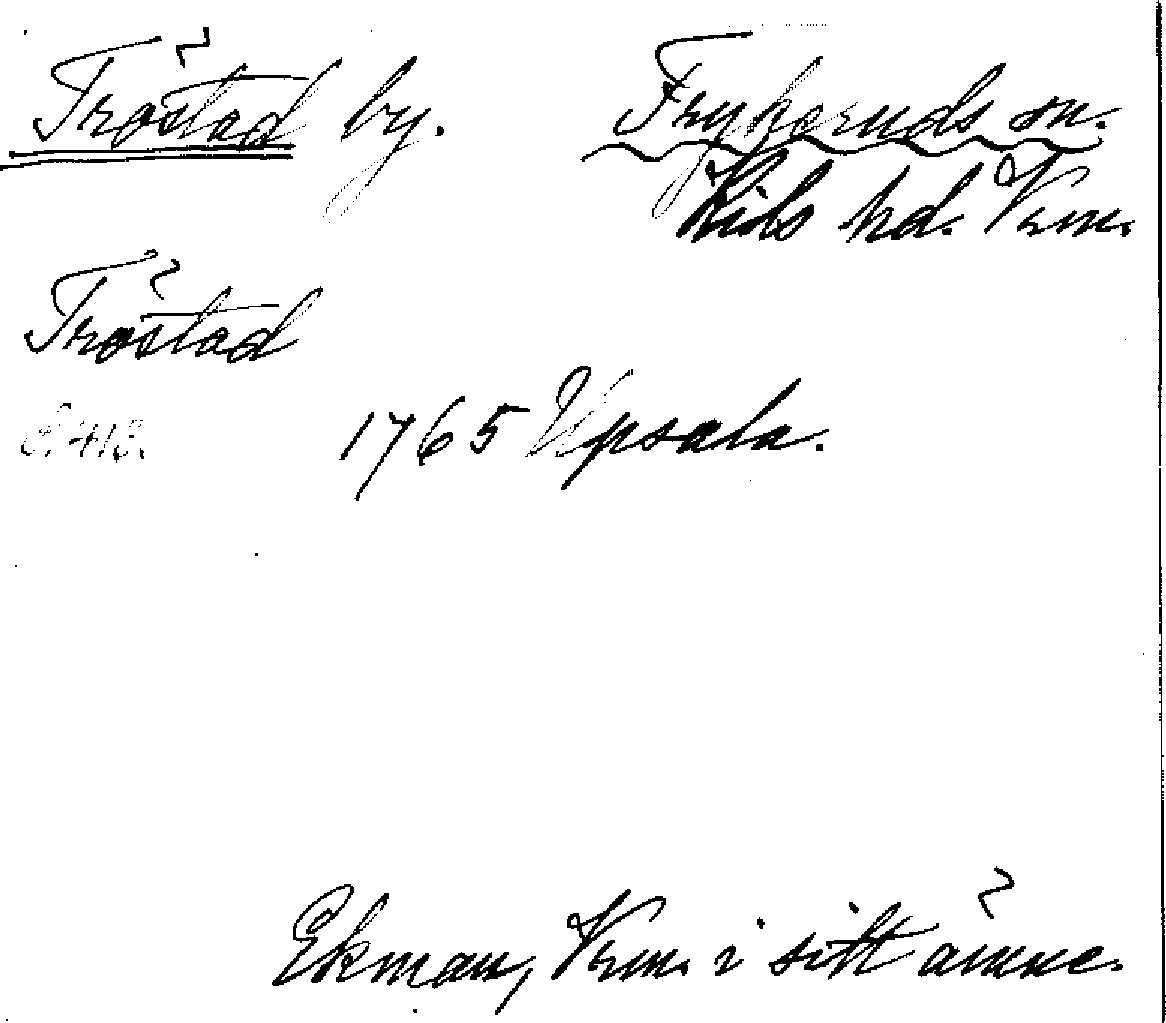 Tröstad by. Frykeruds sn.
Kils hd. Vrm.
Tröstad
s. 418. 1765 Upsala.
Ekman, Vrm. i sitt ämne.